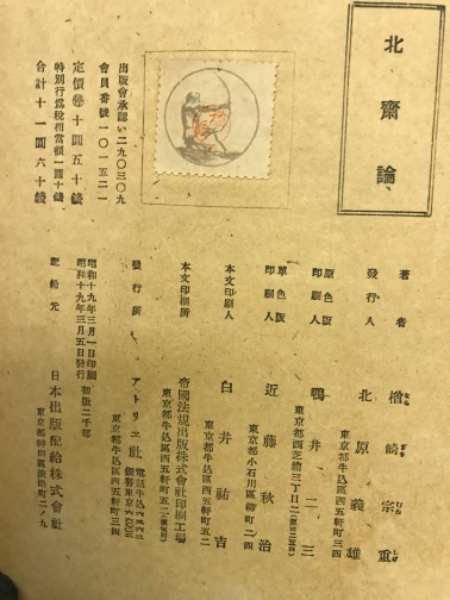 北齋論
著者 楢崎宗重
なら ざき むね しげ
發行人 北原義雄
東京都牛込區西五軒町三四
原色版印刷人 鴨井二三
單色版印刷人 近藤秋治
東京都小石川區 町二四
本文印刷人 白井祐吉
東京都牛込區西五軒町五二
本文印刷所 帝國法規出版株式會社印刷工場
東京都牛込區西五軒町五二
發行所 アトリヱ社
東京都牛込區西五軒町三四
昭和十九年三月一日印刷
昭和十九年三月五日發行 初版二千部
配給元 日本出版配給株式會社
東京都神田區淡路町二ノ九
出版會承認い二九〇三〇九
會員番號一〇一五二一
定價 十圓五十錢
特別行爲稅相當額一圓十錢
合計十一圓六十錢